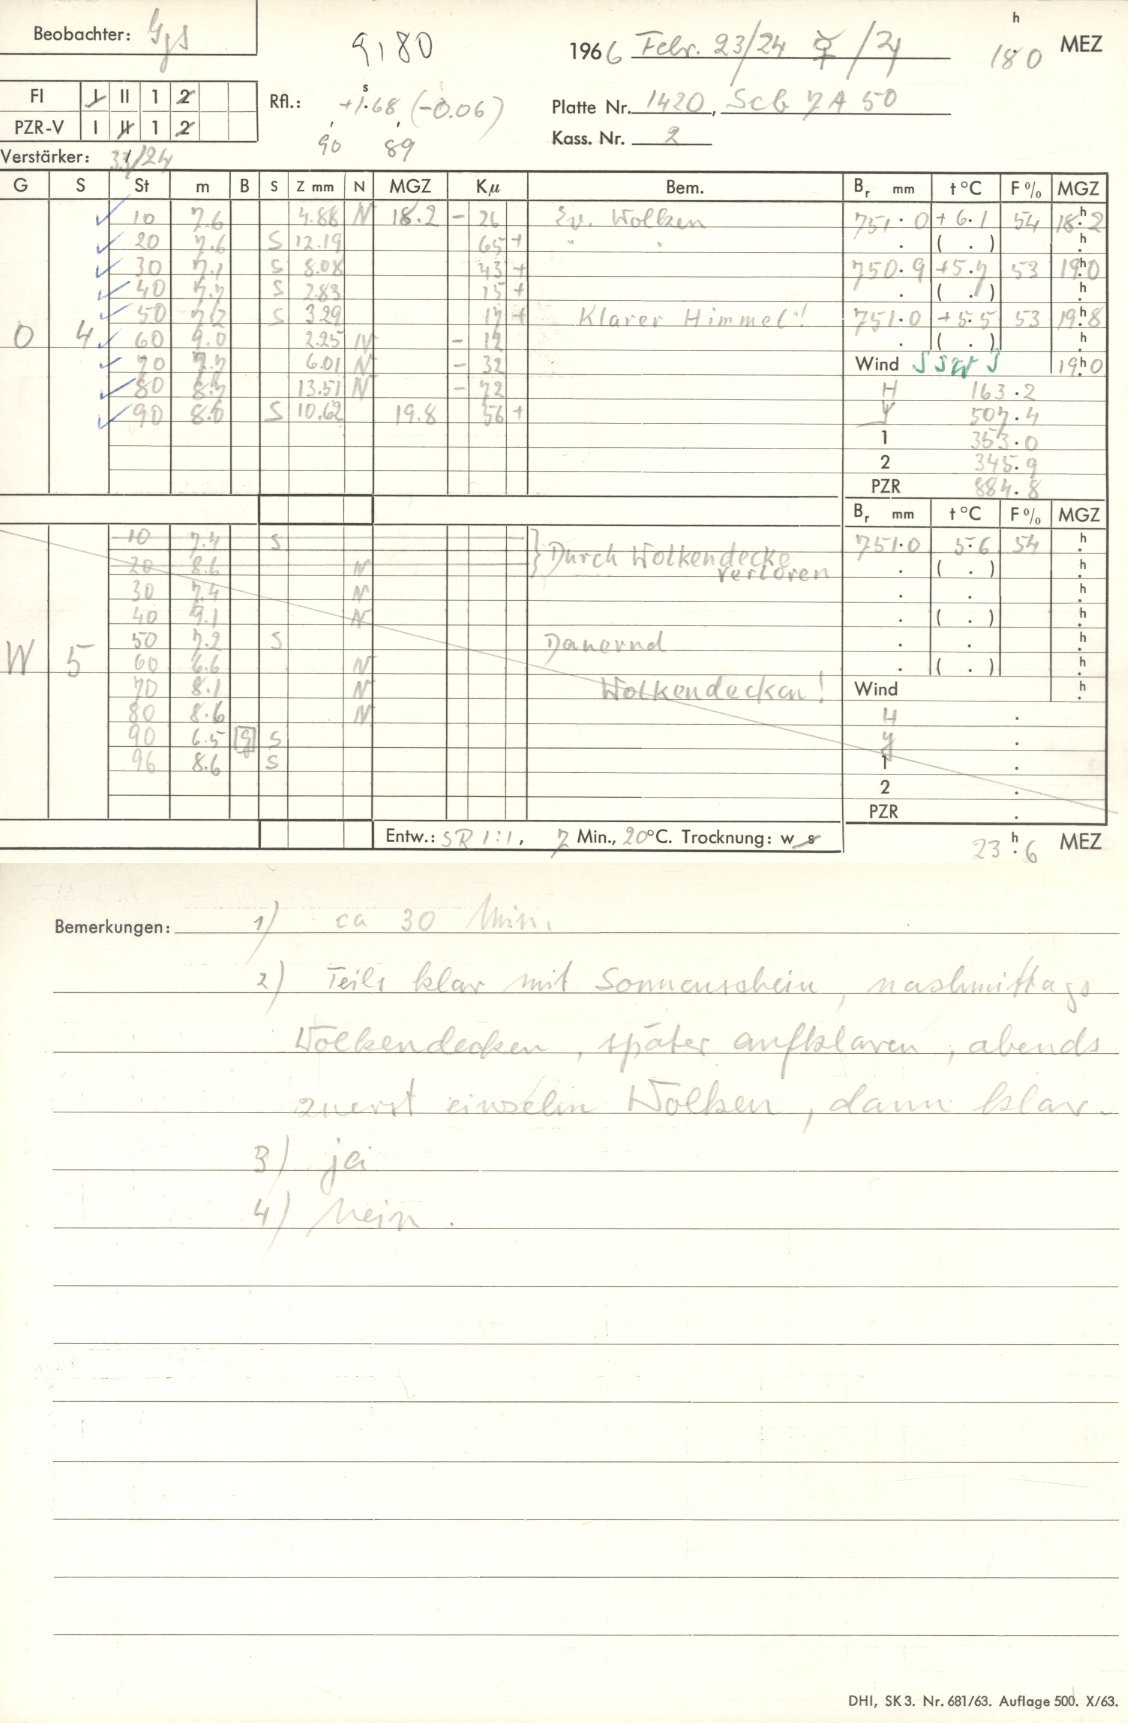 Beobachter: Gjs
9,80
1966 Febr. 23/24 ☿/♃ 18h0 MEZ
FI I II 1 2
PZR-V I II 1 2
Rfl.: +1s.68 (-0.06)
90 89
Platte Nr. 1420, Scb 7A50
Kass. Nr. 2
Verstärker: 33/24
G S St m B S Z mm N MGZ Kμ Bem. Br mm t °C F % MGZ
10 7.6 4.88 N 18.2 - 26 Ev. Wolken 751.0 +6.1 54 18h2
20 7.6 S 12.19 65 + " " . ( . ) h
30 7.1 S 8.08 43 + 750.9 +5.7 53 19h0
40 7.7 S 2.83 15 + . ( . ) h
50 7.2 S 3.29 17 + Klarer Himmel! 751.0 +5.5 53 19h8
O 4 60 9.0 2.25 N - 12 . ( . ) h
70 7.7 6.01 N - 32 Wind SSW 3 19h0
80 8.7 13.51 N - 72 H 163.2
90 8.0 S 10.62 19.8 56 + 507.4
1 353.0
2 345.9
PZR 884.8
Br mm t °C F % MGZ
10 7.4 S Durch Wolkendecke 751.0 5.6 54 h
20 8.6 N verloren . ( . ) h
30 7.4 N . . h
40 9.1 N . ( . ) h
50 7.2 S Dauernd . . h
W 5 60 6.6 N . ( . ) h
70 8.1 N Wolkendecken! Wind h
80 8.6 N H .
90 6.5 9 S y .
96 8.6 S 1 .
2 .
PZR .
Entw.: SR 1:1, 7 Min., 20°C. Trocknung: w s 23h6 MEZ
Bemerkungen: 1) ca 30 Min.
2) Teils klar mit Sonnenschein, nachmittags
Wolkendecken, später aufklaren, abends
zuerst einzelne Wolken, dann klar.
3) ja
4) Nein.
DHI, SK 3. Nr. 681/63. Auflage 500. X/63.